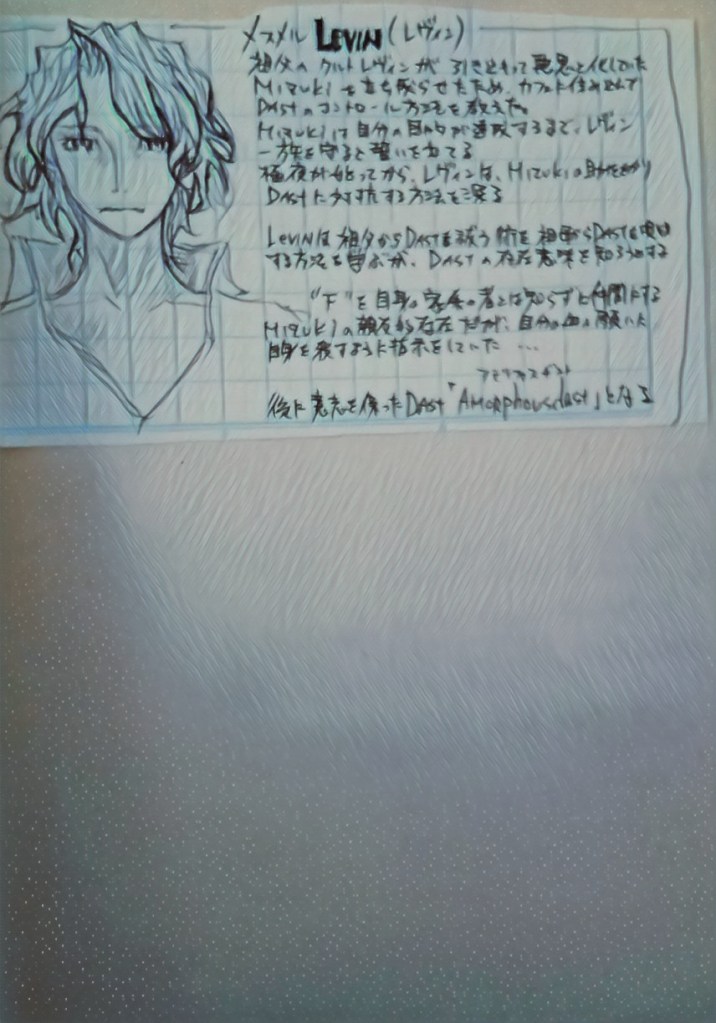 メスメル LEVIN (レヴィン)
祖父の クルトレヴィンが 引き 悪 と化していた
Mizuki を立ち らせたため、カフェに住み込んで
DASTのコントロール方法を教えた。
Mizukiは自分の目的が達成するまで、レヴィン
一族を守ると誓いを立てる
極夜が始まってから、レヴィンは、Mizukiの助けをかり
DASTに対抗する方法を探る
LEVINは祖父からDASTを 術を 祖 からDASTを
する方法を学ぶが、DASTの存在意味を知ろうとする
"下"を自身の の者とは知らずと仲間にする
Mizukiの 的存在だが、自分の血の願いに
自身を するように指示をしていた ...
アモラファスダスト
後に意志を ったDAST「AMorphousdast」となる